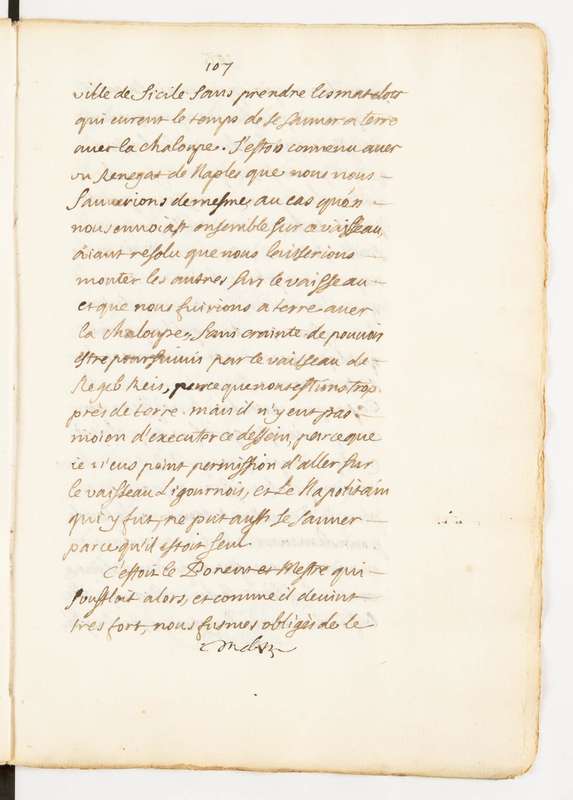 107
ville de Sicile sans prendre les matelots
qui eurent le temps de se sauver a terre
avec la chaloupe. J'estois convenu avec
un Renegat de Naples que nous nous
sauverions de mesme, au cas qu'on
nous envoiast ensemble sur ce vaisseau,
aiant resolu que nous laisserions
monter les autres sur le vaisseau
et que nous fuirions a terre avec
la chaloupe, sans crainte de pouvoir
estre poursuivis par le vaisseau de
Regeb Reis, parce que nous estions trop
près de terre. mais il n'y eut pas
moien d'executer ce dessein, parce que
ie n'eus point permission d'aller sur
le vaisseau Ligournois, et le Napolitain
qui y fut, ne put aussi se sauver
parce qu'il estoit seul.
C'estoit le Ponent et Mestre qui
souffloit alors, et comme il devint
tres fort, nous fusmes obligés de le